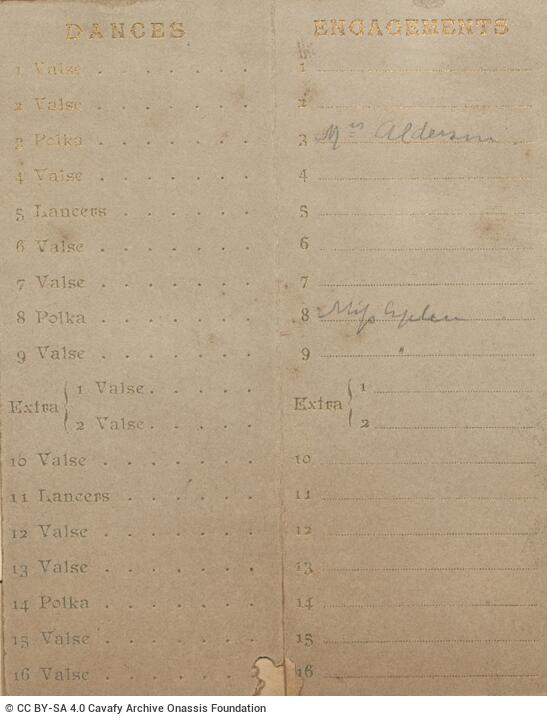 DANCES
1 Valse
2 Valse
3 Polka
4 Valse
5 Lancers
6 Valse
7 Valse
8 Polka
9 Valse
Extra
1 Valse
2 Valse
10 Valse
11 Lancers
12 Valse
13 Valse
14 Polka
15 Valse
16 Valse
ENGAGEMENTS
1
2
3 Mrs Alderson
4
5
6
7
8 Miss
9 "
Extra
1
2
10
11
12
13
14
15
16
© CC BY-SA 4.0 Cavafy Archive Onassis Foundation